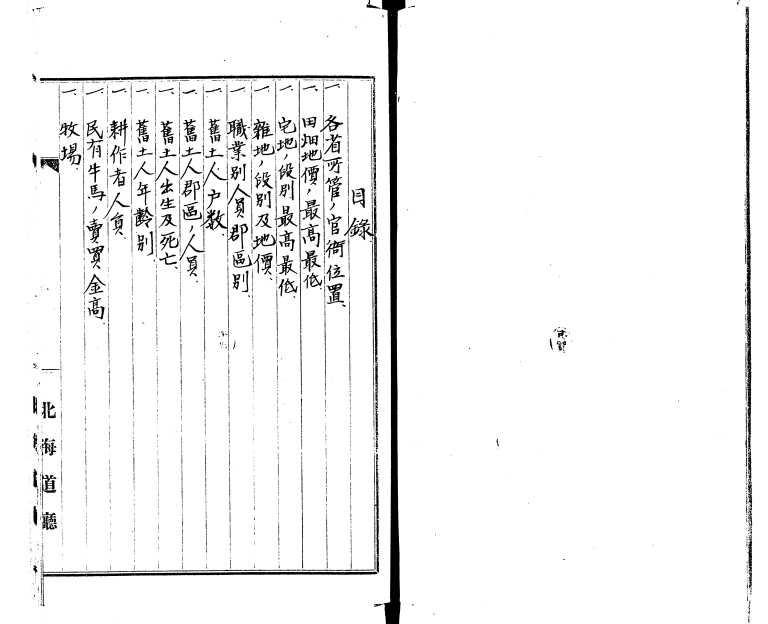 目錄
一、各省所管ノ官衙位置、
一、田畑地價ノ最高最低、
一、宅地ノ段別最高最低、
一、雜地ノ段別及地價、
一、職業別人員郡區別、
一、舊土人ノ戸数、
一、舊土人郡區ノ人員、
一、舊土人出生及死亡、
一、舊土人年齡別、
一、耕作者人員、
一、民有牛馬ノ賣買金高
一、牧場、
北海道廳